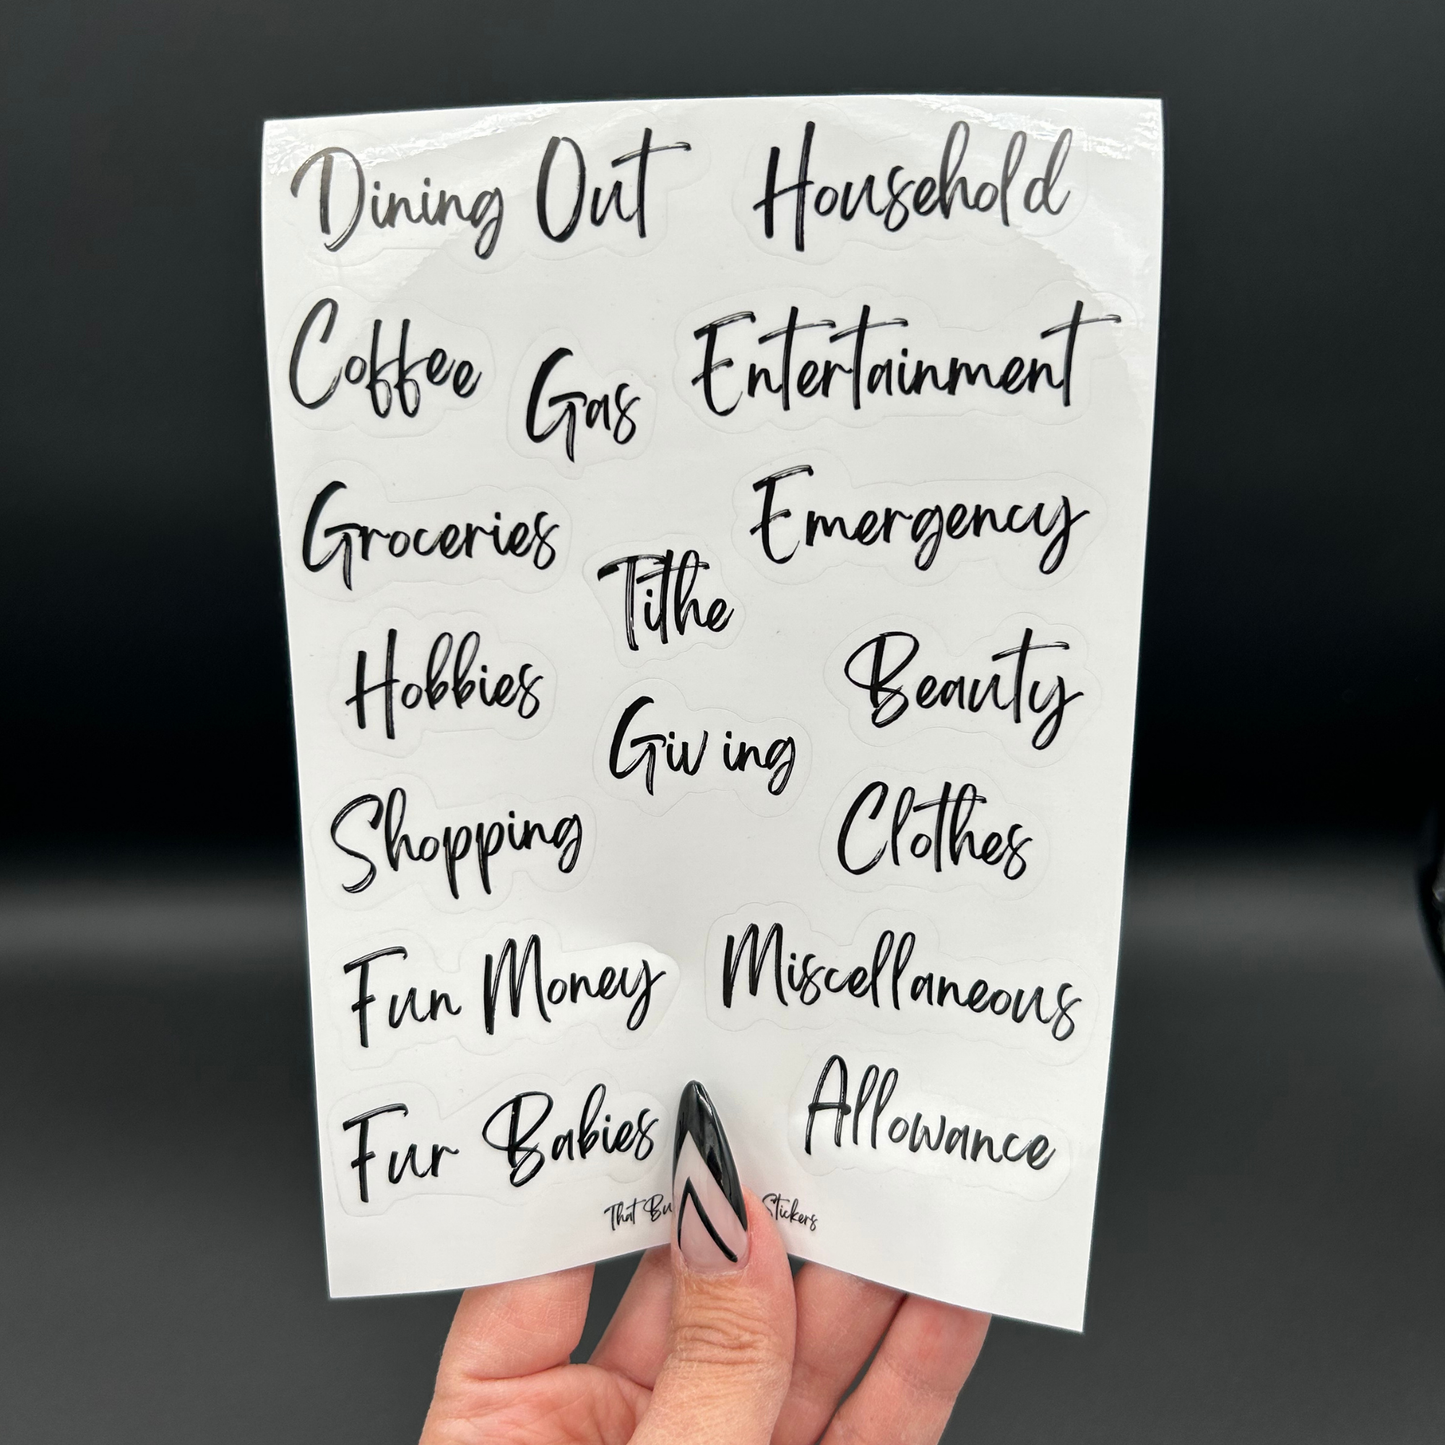 Dining Out
Household
Coffee
Gas
Entertainment
Groceries
Emergency
Tithe
Hobbies
Beauty
Giving
Shopping
Clothes
Fun Money
Miscellaneous
Fur Babies
Allowance
That Stickers